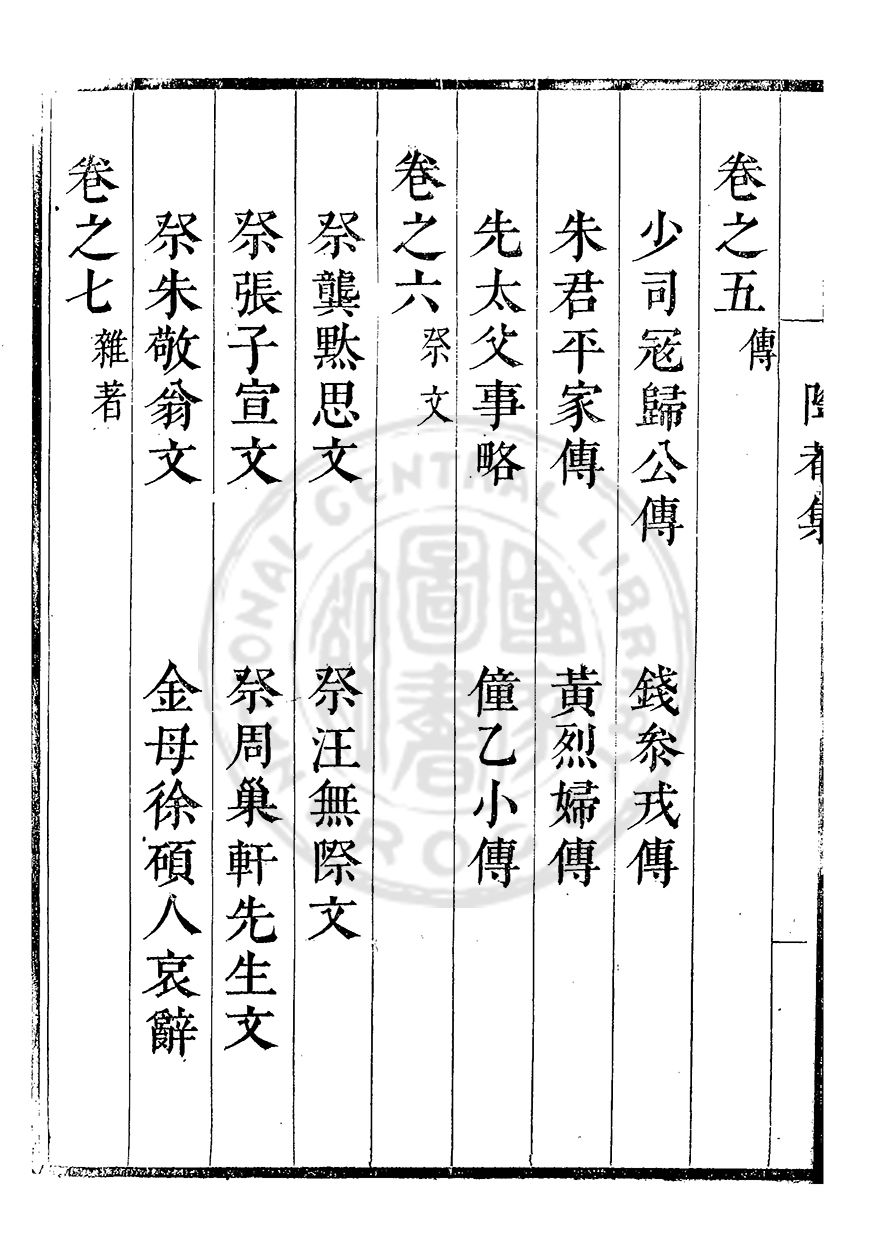 卷之五 傳
少司冦歸公傳 錢叅戎傳
朱君平家傳 黃烈婦傳
先太父事略 僮乙小傳
卷之六 祭文
祭龔㸃思文 祭汪無際文
祭張子宣文 祭周巢軒先生文
祭朱敬翁文 金母徐碩人哀辭
卷之七 雜著
NATIONAL CENTRAL LIBRARY